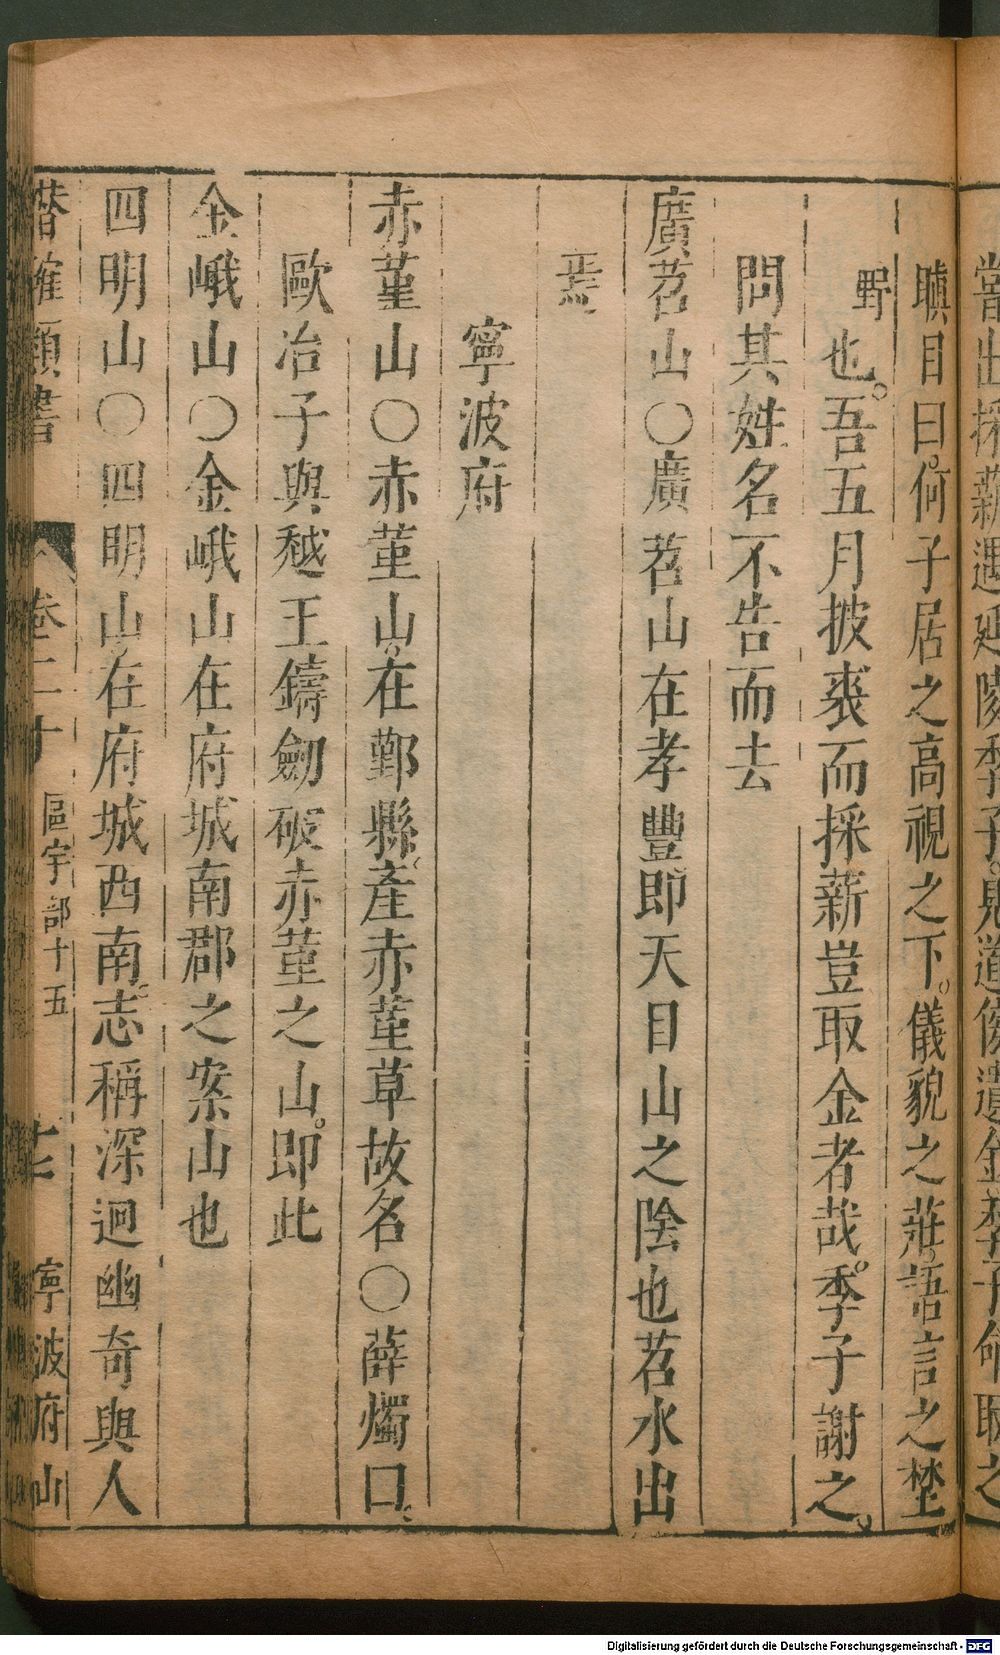 嘗出採薪遇延陵季子。見道傍遺金季子命取之
瞋目曰。何子居之高視之下。儀貌之莊。語言之埜
野
也。吾五月披裘而採薪豈取金者哉。季子謝之。
問其姓名不告而去
廣苕山○廣苕山在孝豐。即天目山之陰也苕水出
焉
寧波府
赤堇山○赤堇山。在鄞縣。產赤堇草故名○薛燭口。
歐冶子與越王鑄劒破赤堇之山。即此
金峨山○金峨山在府城南郡之案山也
四明山○四明山。在府城西南。志稱深迴幽奇與人
潛確類書 卷二十 區宇部十五 七 寧波府山
Digitalisierung gefördert durch die Deutsche Forschungsgemeinschaft - DFG